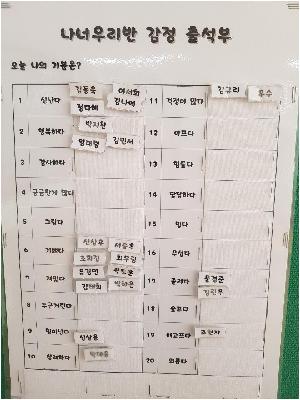 나너우리반 감정 출석부
오늘 나의 기분은?
1 신난다 김동욱 이서희
정다혜 김나예
2 행복하다 박지환
양태령 김민서
3 감사하다
4 궁금한게 많다
5 그립다
6 기쁘다 신상우
조희진 최우림
7 재밌다 유경민
김태희 박하은
8 두근거린다
9 힘이난다 신상윤
10 설레하다
11 걱정이 많다 김규리 우수
12 아프다
13 힘들다
14 답답하다
15 밉다
16 무섭다
17 졸리다
김민우
18 슬프다
19 배고프다
20 외롭다